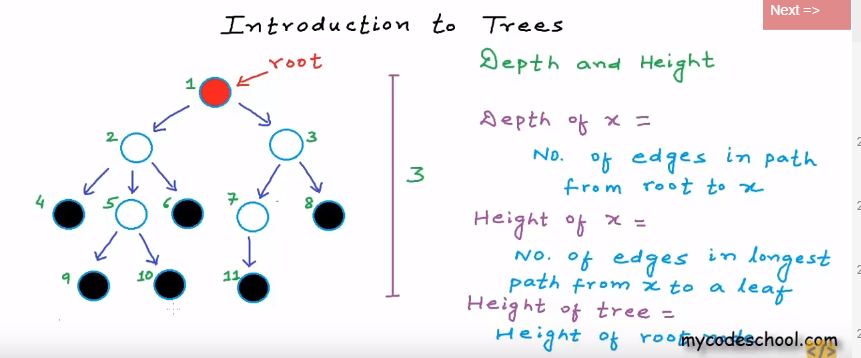 Next =>
Introduction to Trees
root
1
2
3
4
5
6
7
8
9
10
11
3
Depth and Height
Depth of x =
No. of edges in path
from root to x
Height of x =
No. of edges in longest
path from x to a leaf
Height of tree =
Height of root
mycodeschool.com
</>